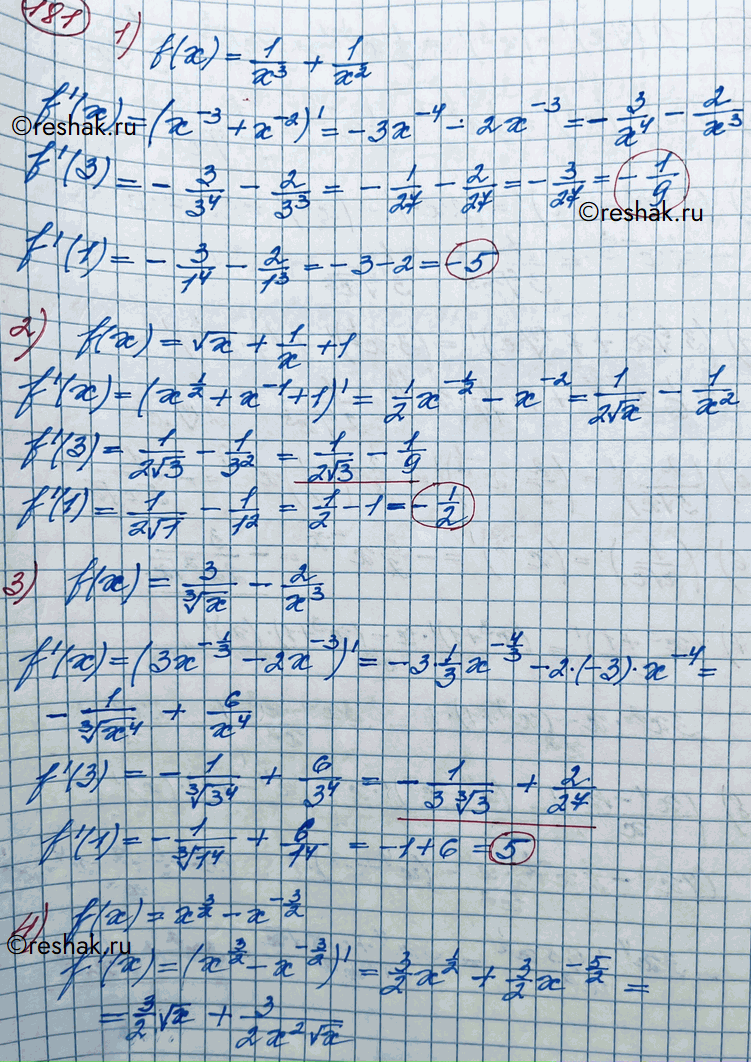 181
1) f(x) = 1/x³ + 1/x²
f'(x) = (x⁻³ + x⁻²)' = -3x⁻⁴ - 2x⁻³ = - 3/x⁴ - 2/x³
©reshak.ru
f'(3) = - 3/3⁴ - 2/3³ = - 1/27 - 2/27 = - 3/27 = - 1/9
©reshak.ru
f'(1) = - 3/1⁴ - 2/1³ = -3 - 2 = -5
2) f(x) = √x + 1/x + 1
f'(x) = (x^(1/2) + x⁻¹ + 1)' = 1/2 x^(-1/2) - x⁻² = 1/(2√x) - 1/x²
f'(3) = 1/(2√3) - 1/3² = 1/(2√3) - 1/9
f'(1) = 1/(2√1) - 1/1² = 1/2 - 1 = - 1/2
3) f(x) = 3/∛x - 2/x³
f'(x) = (3x^(-1/3) - 2x⁻³)' = -3·1/3 x^(-4/3) - 2·(-3)·x⁻⁴ =
- 1/∛(x⁴) + 6/x⁴
f'(3) = - 1/∛(3⁴) + 6/3⁴ = - 1/(3∛3) + 2/27
f'(1) = - 1/∛(1⁴) + 6/1⁴ = -1 + 6 = 5
4) f(x) = x^(3/2) - x^(-3/2)
©reshak.ru
f'(x) = (x^(3/2) - x^(-3/2))' = 3/2 x^(1/2) + 3/2 x^(-5/2) =
= 3/2 √x + 3/(2x²√x)